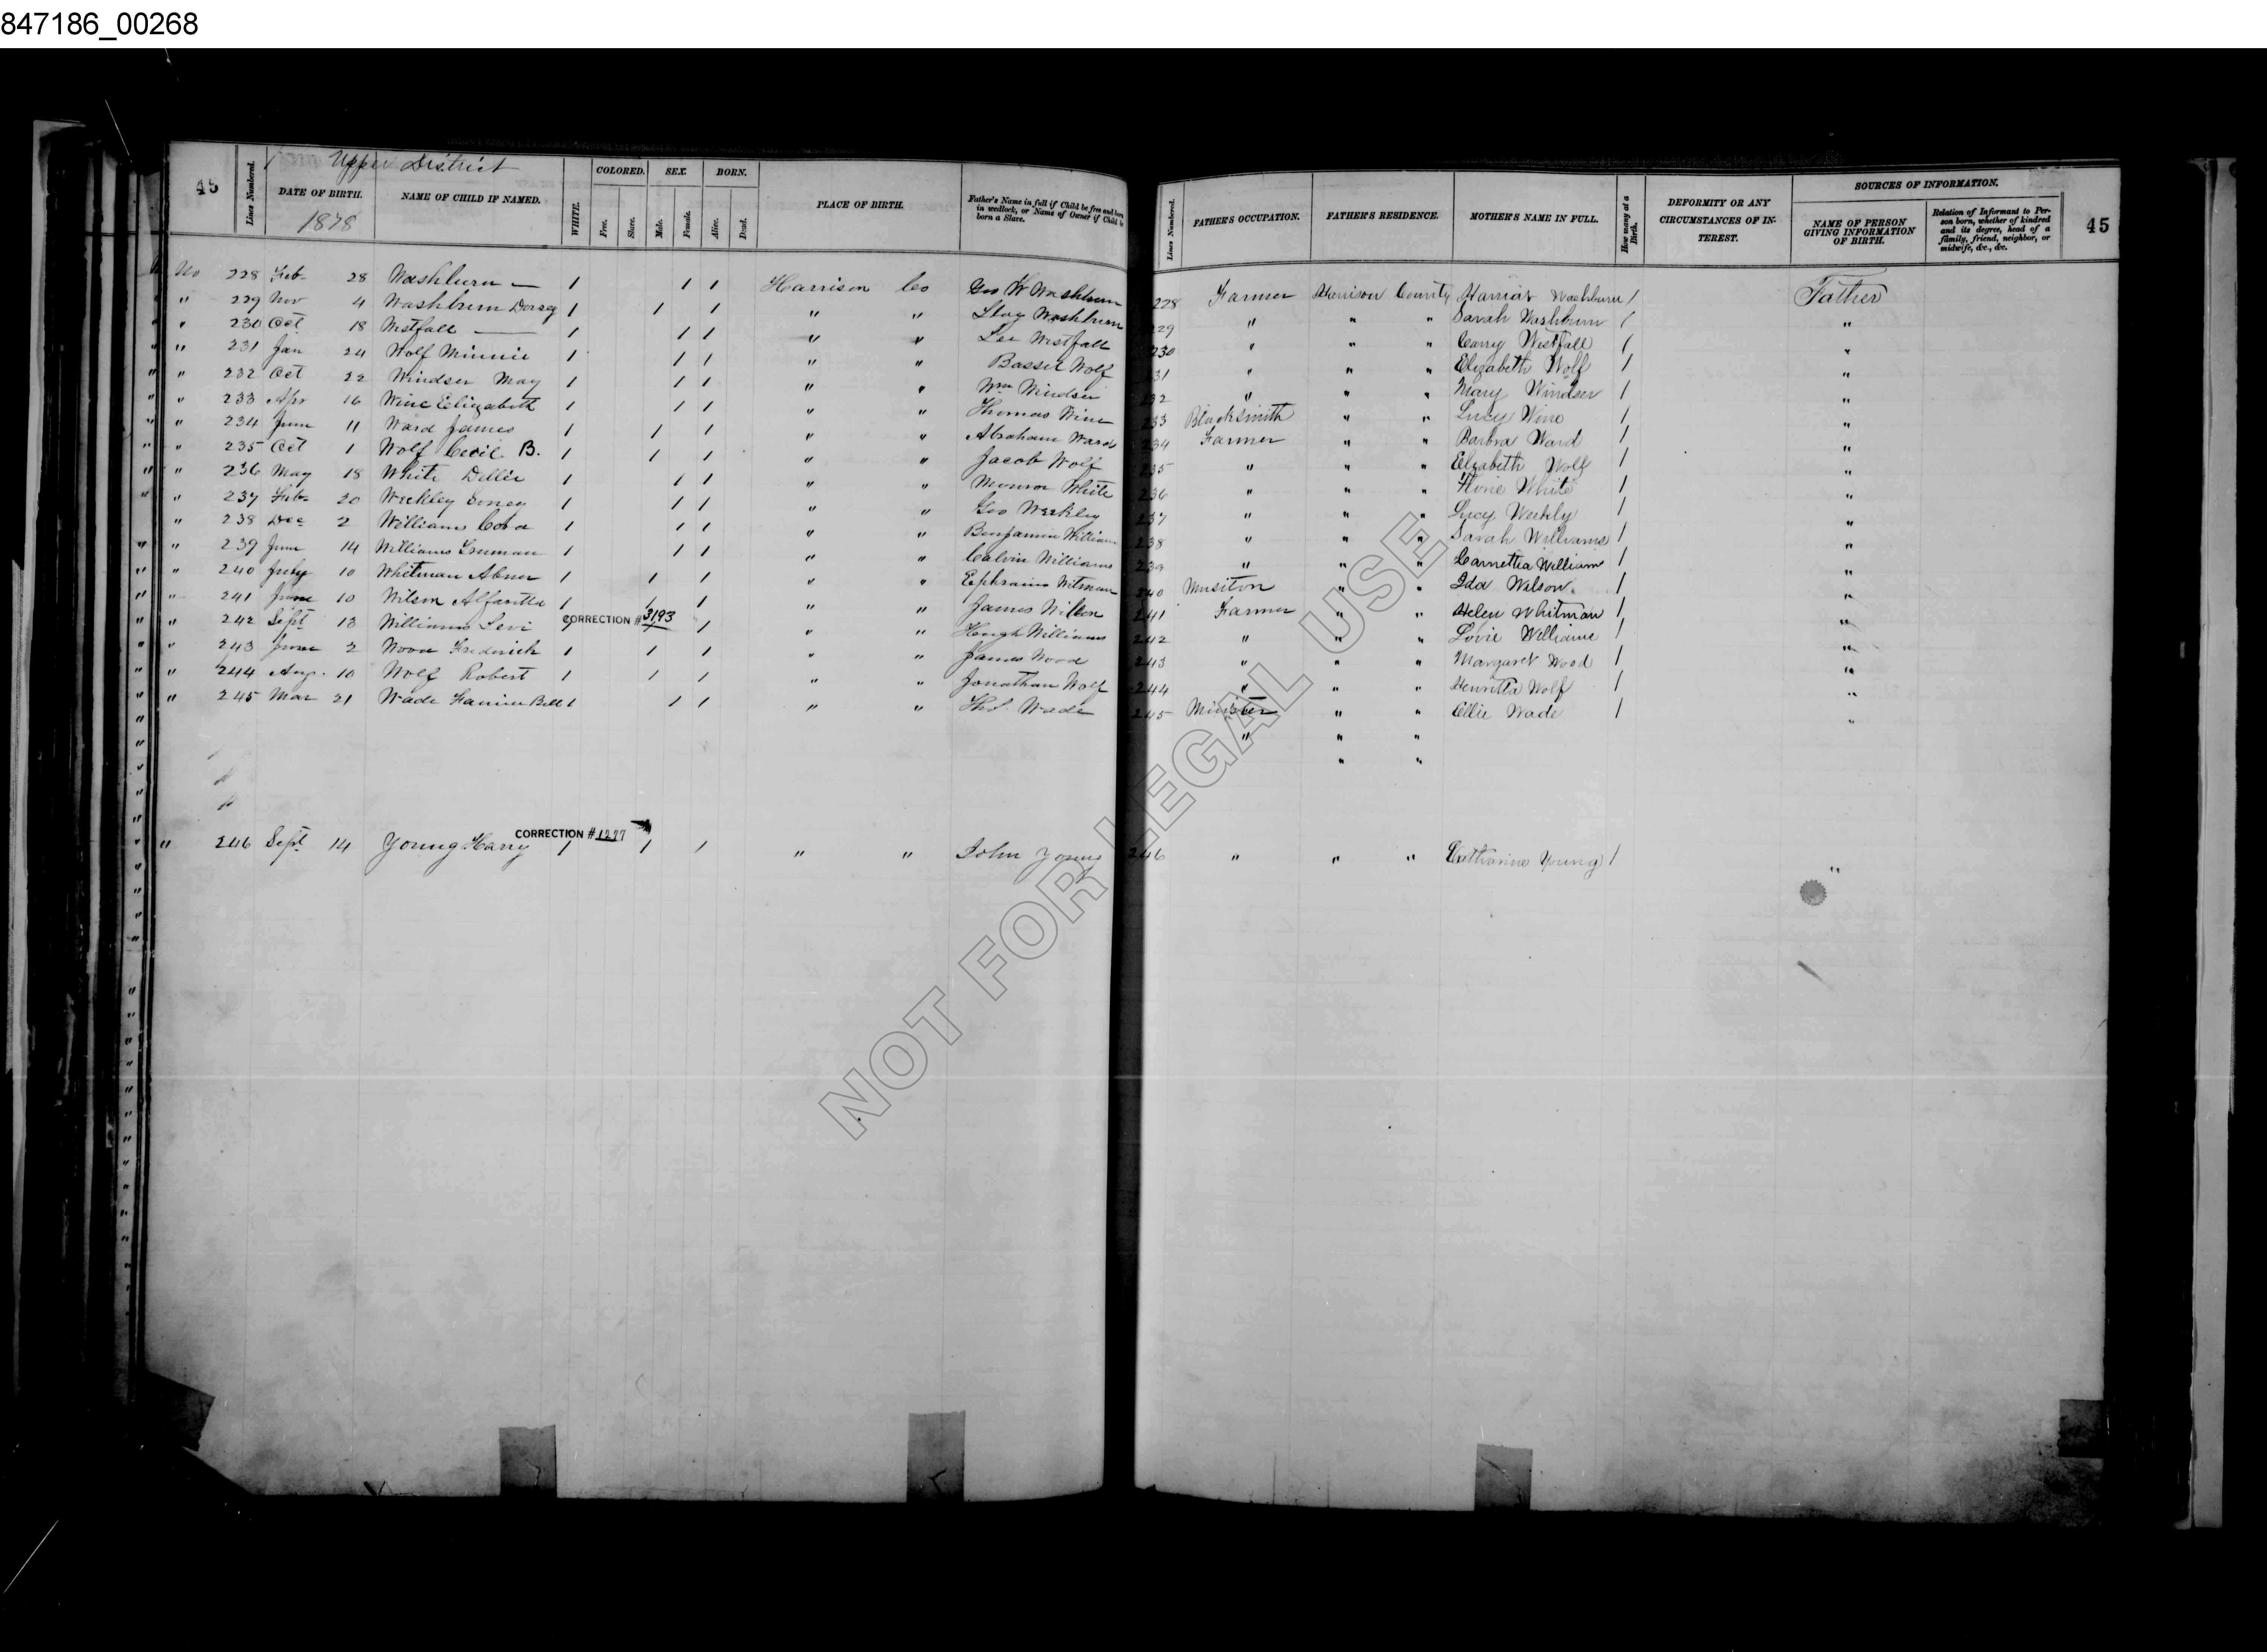 847186_00268
45
Upper District
Lines Numbered.
DATE OF BIRTH.
1878
NAME OF CHILD IF NAMED.
WHITE.
COLORED.
Free.
Slave.
SEX.
Male.
Female.
BORN.
Alive.
Dead.
PLACE OF BIRTH.
Father's Name in full if Child be free and born
in wedlock, or Name of Owner if Child be
born a Slave.
Lines Numbered.
FATHER'S OCCUPATION.
FATHER'S RESIDENCE.
MOTHER'S NAME IN FULL.
How many at a
Birth.
DEFORMITY OR ANY
CIRCUMSTANCES OF IN-
TEREST.
SOURCES OF INFORMATION.
NAME OF PERSON
GIVING INFORMATION
OF BIRTH.
Relation of Informant to Per-
son born, whether of kindred
and its degree, head of a
family, friend, neighbor, or
midwife, &c., &c.
45
No 228 Feb 28 Washburn — 1 1 1 Harrison Co Geo W Washburn 228 Farmer Harrison County Harriat Washburn 1 Father
" 229 Nov 4 Washburn Dorsey 1 1 1 " " Washburn 229 " " " Sarah Washburn 1 "
" 230 Oct 18 Westfall — 1 1 1 " " Lee Westfall 230 " " " Carry Westfall 1 "
" 231 Jan 24 Wolf Minnie 1 1 1 " " Basset Wolf 231 " " " Elizabeth Wolf 1 "
" 232 Oct 22 Windser May 1 1 1 " " Wm Windser 232 " " " Mary Windser 1 "
" 233 Apr 16 Wine Elizabeth 1 1 1 " " Thomas Wine 233 Blacksmith " " Lucy Wine 1 "
" 234 June 11 Ward James 1 1 1 " " Abraham Ward 234 Farmer " " Barbra Ward 1 "
" 235 Oct 1 Wolf Cecil B. 1 1 1 " " Jacob Wolf 235 " " " Elizabeth Wolf 1 "
" 236 May 18 White Dellie 1 1 1 " " Monroe White 236 " " " White 1 "
" 237 Feb 20 Weekley 1 1 1 " " Geo Weekley 237 " " " Lucy Weekly 1 "
" 238 Dec 2 Williams Cora 1 1 1 " " Benjamin William 238 " " " Sarah Williams 1 "
" 239 June 14 Williams Truman 1 1 1 " " Calvin Williams 239 " " " Carnettia William 1 "
" 240 July 10 Whitman Abner 1 1 1 " " Ephraim Witman 240 " " Ida Wilson 1 "
" 241 June 10 Wilson Alfaretta 1 1 1 " " James Wilson 241 Farmer " " Helen Whitman 1 "
" 242 Sept 13 Williams Levi CORRECTION # 3193 1 " " Hough Williams 242 " " " Lovie Williams 1 "
" 243 June 2 Wood Frederick 1 1 1 " " James Wood 243 " " " Margaret Wood 1 "
" 244 Aug. 10 Wolf Robert 1 1 1 " " Jonathan Wolf 244 " " " Henritta Wolf 1 "
" 245 Mar 21 Wade Fannie Bell 1 1 1 " " Wade 245 Minister " " Ellie Wade 1 "
" " "
" "
CORRECTION # 1227
" 246 Sept 14 Young Harry 1 1 1 " " John Young 246 " " " Catharine Young 1 "
NOT FOR LEGAL USE